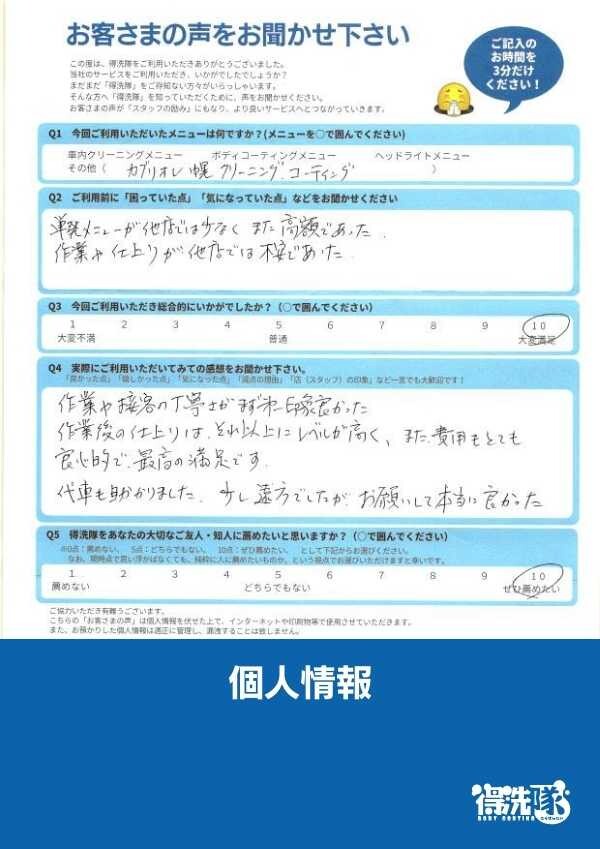 お客さまの声をお聞かせ下さい
ご記入の
お時間を
3分だけ
ください!
この度は、得洗隊をご利用いただきありがとうございました。
当社のサービスをご利用いただき、いかがでしたでしょうか?
まだまだ「得洗隊」をご存知ない方々がいらっしゃいます。
そんな方へ「得洗隊」を知っていただくために、声をお聞かせください。
お客さまの声が「スタッフの励み」にもなり、より良いサービスへとつながっていきます。
Q1 今回ご利用いただいたメニューは何ですか?(メニューを○で囲んでください)
車内クリーニングメニュー ボディコーティングメニュー ヘッドライトメニュー
その他( カブリオレ 幌 クリーニング. コーティング )
Q2 ご利用前に「困っていた点」「気になっていた点」などをお聞かせください
単発メニューが他店では少なく また 高額であった.
作業や仕上りが他店では不安であった.
Q3 今回ご利用いただき総合的にいかがでしたか?(○で囲んでください)
1 2 3 4 5 6 7 8 9 10
大変不満 普通 大変満足
Q4 実際にご利用いただいてみての感想をお聞かせ下さい。
「良かった点」「嬉しかった点」「気になった点」「減点の理由」「店(スタッフ)の印象」など一言でも大歓迎です!
作業や接客の丁寧さがまず 印象良かった
作業後の仕上りは、それ以上にレベルが高く、また、費用もとても
良心的で、最高の満足です.
代車も助かりました. 少し遠方でしたが お願いして本当に良かった
Q5 得洗隊をあなたの大切なご友人・知人に薦めたいと思いますか?(○で囲んでください)
※0点:薦めない、 5点:どちらでもない、 10点:ぜひ薦めたい、 として下記からお選びください。
なお、現時点で思い浮かばなくても、純粋に人に薦めたいものか、という視点でお選びいただけますと幸いです。
1 2 3 4 5 6 7 8 9 10
薦めない どちらでもない ぜひ薦めたい
ご協力いただき有難うございます。
こちらの「お客さまの声」は個人情報を伏せた上で、インターネットや印刷物等で使用させていただきます。
また、お預かりした個人情報は適正に管理し、漏洩することは致しません。
個人情報
得洗隊
BODY COATING